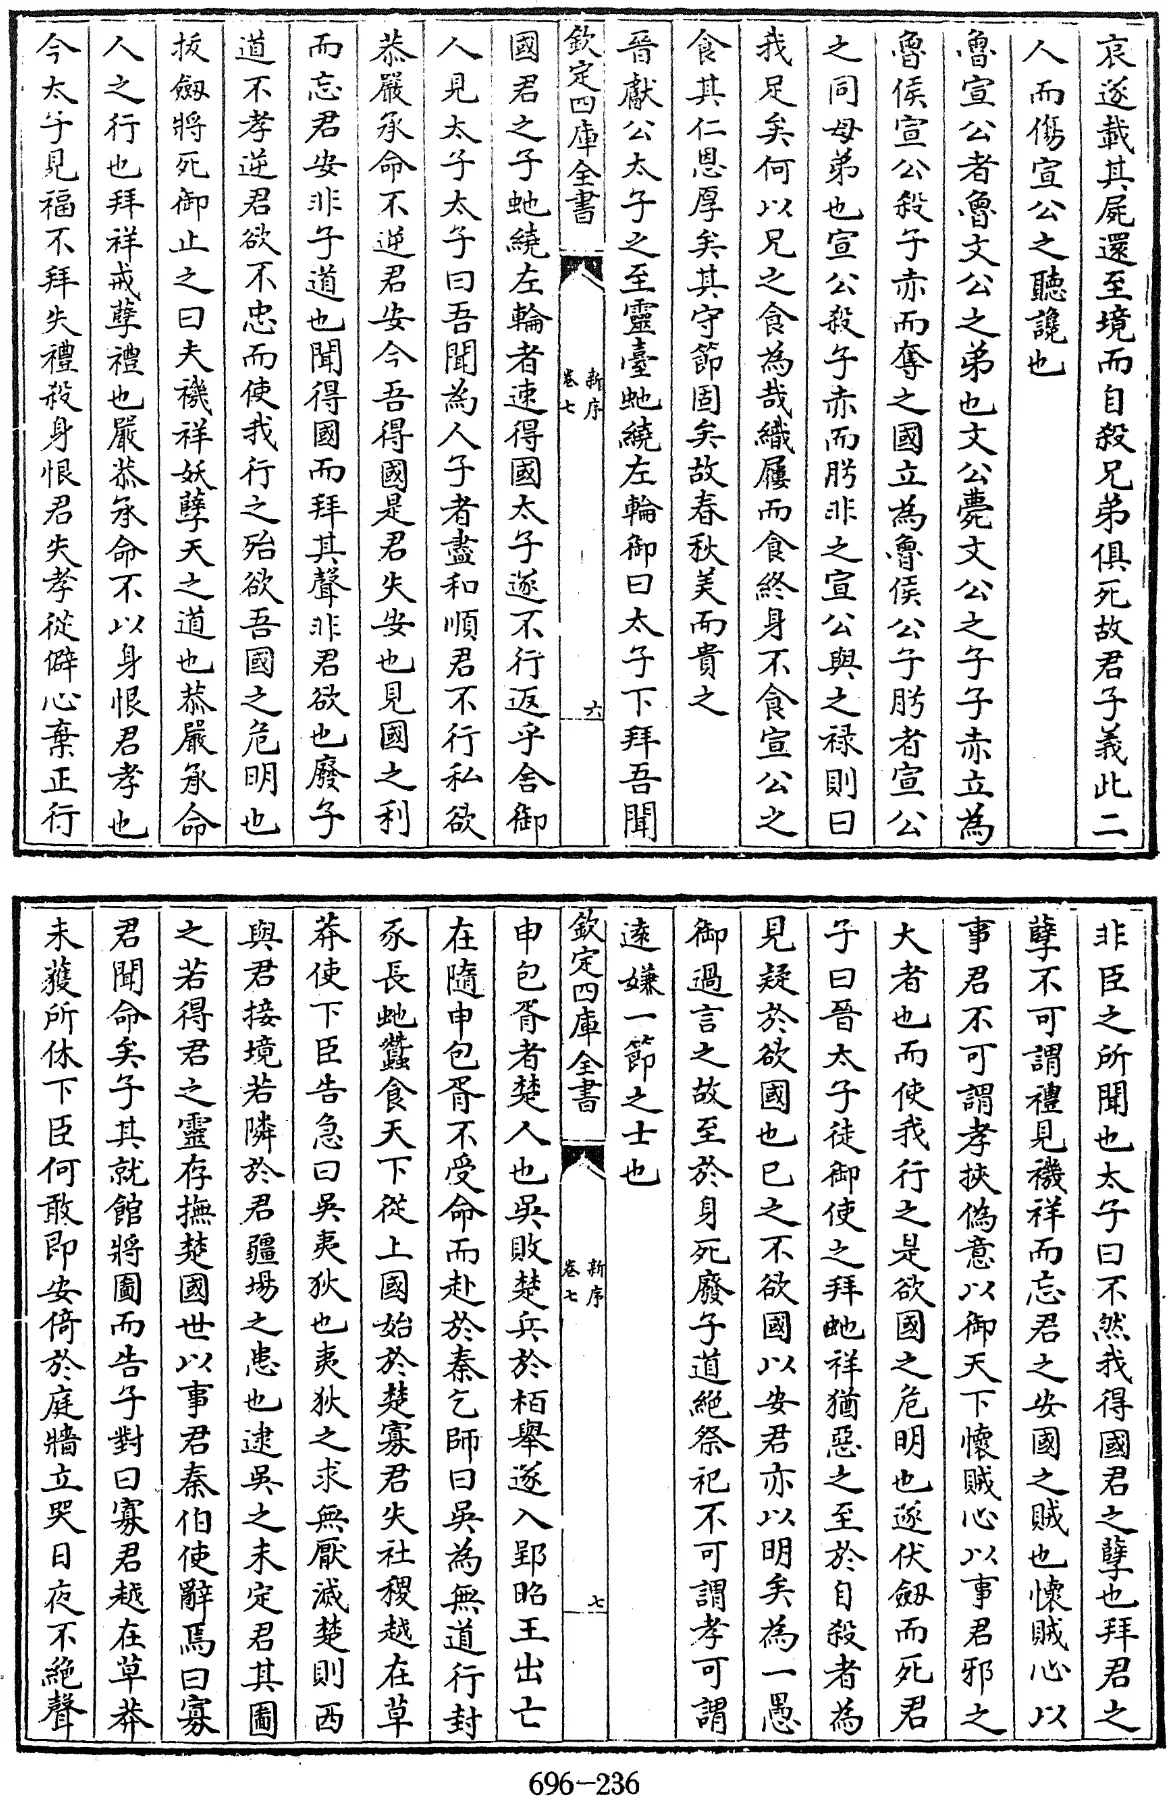 哀遂載其屍還至境而自殺兄弟俱死故君子義此二
人而傷宣公之聽讒也
魯宣公者魯文公之弟也文公薨文公之子子赤立為
魯侯宣公殺子赤而奪之國立為魯侯公子肹者宣公
之同母弟也宣公殺子赤而肹非之宣公與之禄則曰
我足矣何以兄之食為哉織屨而食終身不食宣公之
食其仁恩厚矣其守節固矣故春秋美而貴之
晉獻公太子之至靈臺虵繞左輪御曰太子下拜吾聞
欽定四庫全書
新序
卷七
六
國君之子虵繞左輪者速得國太子遂不行返乎舍御
人見太子太子曰吾聞為人子者盡和順君不行私欲
恭嚴承命不逆君安今吾得國是君失安也見國之利
而忘君安非子道也聞得國而拜其聲非君欲也廢子
道不孝逆君欲不忠而使我行之殆欲吾國之危明也
拔劔將死御止之曰夫禨祥妖孽天之道也恭嚴承命
人之行也拜祥戒孽禮也嚴恭承命不以身恨君孝也
今太子見福不拜失禮殺身恨君失孝從僻心棄正行
非臣之所聞也太子曰不然我得國君之孽也拜君之
孽不可謂禮見禨祥而忘君之安國之賊也懷賊心以
事君不可謂孝挾偽意以御天下懷賊心以事君邪之
大者也而使我行之是欲國之危明也遂伏劔而死君
子曰晉太子徒御使之拜虵祥猶惡之至於自殺者為
見疑於欲國也已之不欲國以安君亦以明矣為一愚
御過言之故至於身死廢子道絶祭祀不可謂孝可謂
遠嫌一節之士也
欽定四庫全書
新序
卷七
七
申包胥者楚人也吳敗楚兵於栢舉遂入郢昭王出亡
在隨申包胥不受命而赴於秦乞師曰吳為無道行封
豕長虵蠶食天下從上國始於楚寡君失社稷越在草
莽使下臣告急曰吳夷狄也夷狄之求無厭滅楚則西
與君接境若隣於君疆埸之患也逮吳之未定君其圖
之若得君之靈存撫楚國世以事君秦伯使辭焉曰寡
君聞命矣子其就館將圖而告子對曰寡君越在草莽
未獲所休下臣何敢即安倚於庭牆立哭日夜不絶聲
696-236